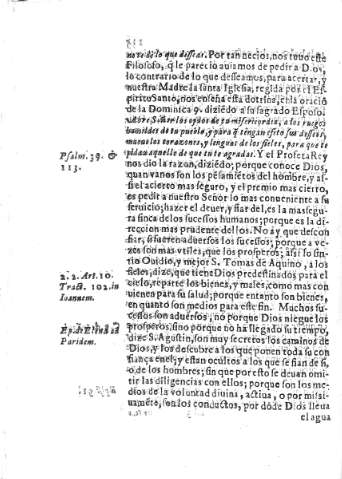 no te de lo que desseas. Por tan necios nos tuuo este
Filosofo, q̃ le pareciò auiamos de pedir a Dios,
lo contrario de lo que desseamos, para acertar, y
nuestra Madre la santa Iglesia, regida por el Es-
piritu Santo, nos enseña esta dotrina, en la oraciō
de la Dominica 9. diziēdo a su sagrado Esposo:
Abre Señor los oydos de tu misericordia, a los ruegos
humildes de tu pueblo, y para q̃ tengan efeto sus desseos,
mueue los coraçones, y lenguas de los fieles, para que te
pidan aquello de que tu te agradas. Y el Profeta Rey
nos dio la razon, diziēdo; porque conoce Dios,
quan vanos son los pēsamiētos del hombre, y assi
el acierto mas seguro, y el premio mas cierto,
es pedir a nuestro Señor lo mas conueniente a su
seruicio; hazer el deuer, y fiar del, es la mas segu-
ra finca de los sucessos humanos; porque es la di-
reccion mas prudente dellos. No ay que descon
fiar, si fueren aduersos los sucessos; porque a ve-
zes son mas vtiles, que los prosperos; assi lo sin-
tio Ouidio, y mejor S. Tomas de Aquino, a los
fieles, dize, que tiene Dios predestinados para el
cielo, reparte los bienes, y males, como mas con
uienen para su salud; porque entanto son bienes,
en quanto son medios para este fin. Muchos su-
cessos son aduersos, no porque Dios niegue los
prosperos, sino porque no ha llegado su tiempo,
dize S. Agustin, son muy secretos los caminos de
Dios, y los descubre a los que ponen toda su con
fiança en el; y estan ocultos a los que se fian de si,
o de los hombres; sin que por esto se deuan omi-
tir las diligencias con ellos; porque son los me-
dios de la voluntad diuina, actiua, o por missi-
uamēte, son los conductos, por dōde Dios lleua
el agua
Psalm. 39. &
113.
2. 2. Art. 10.
Tract. 102. in
Ioannem.
Paridem.